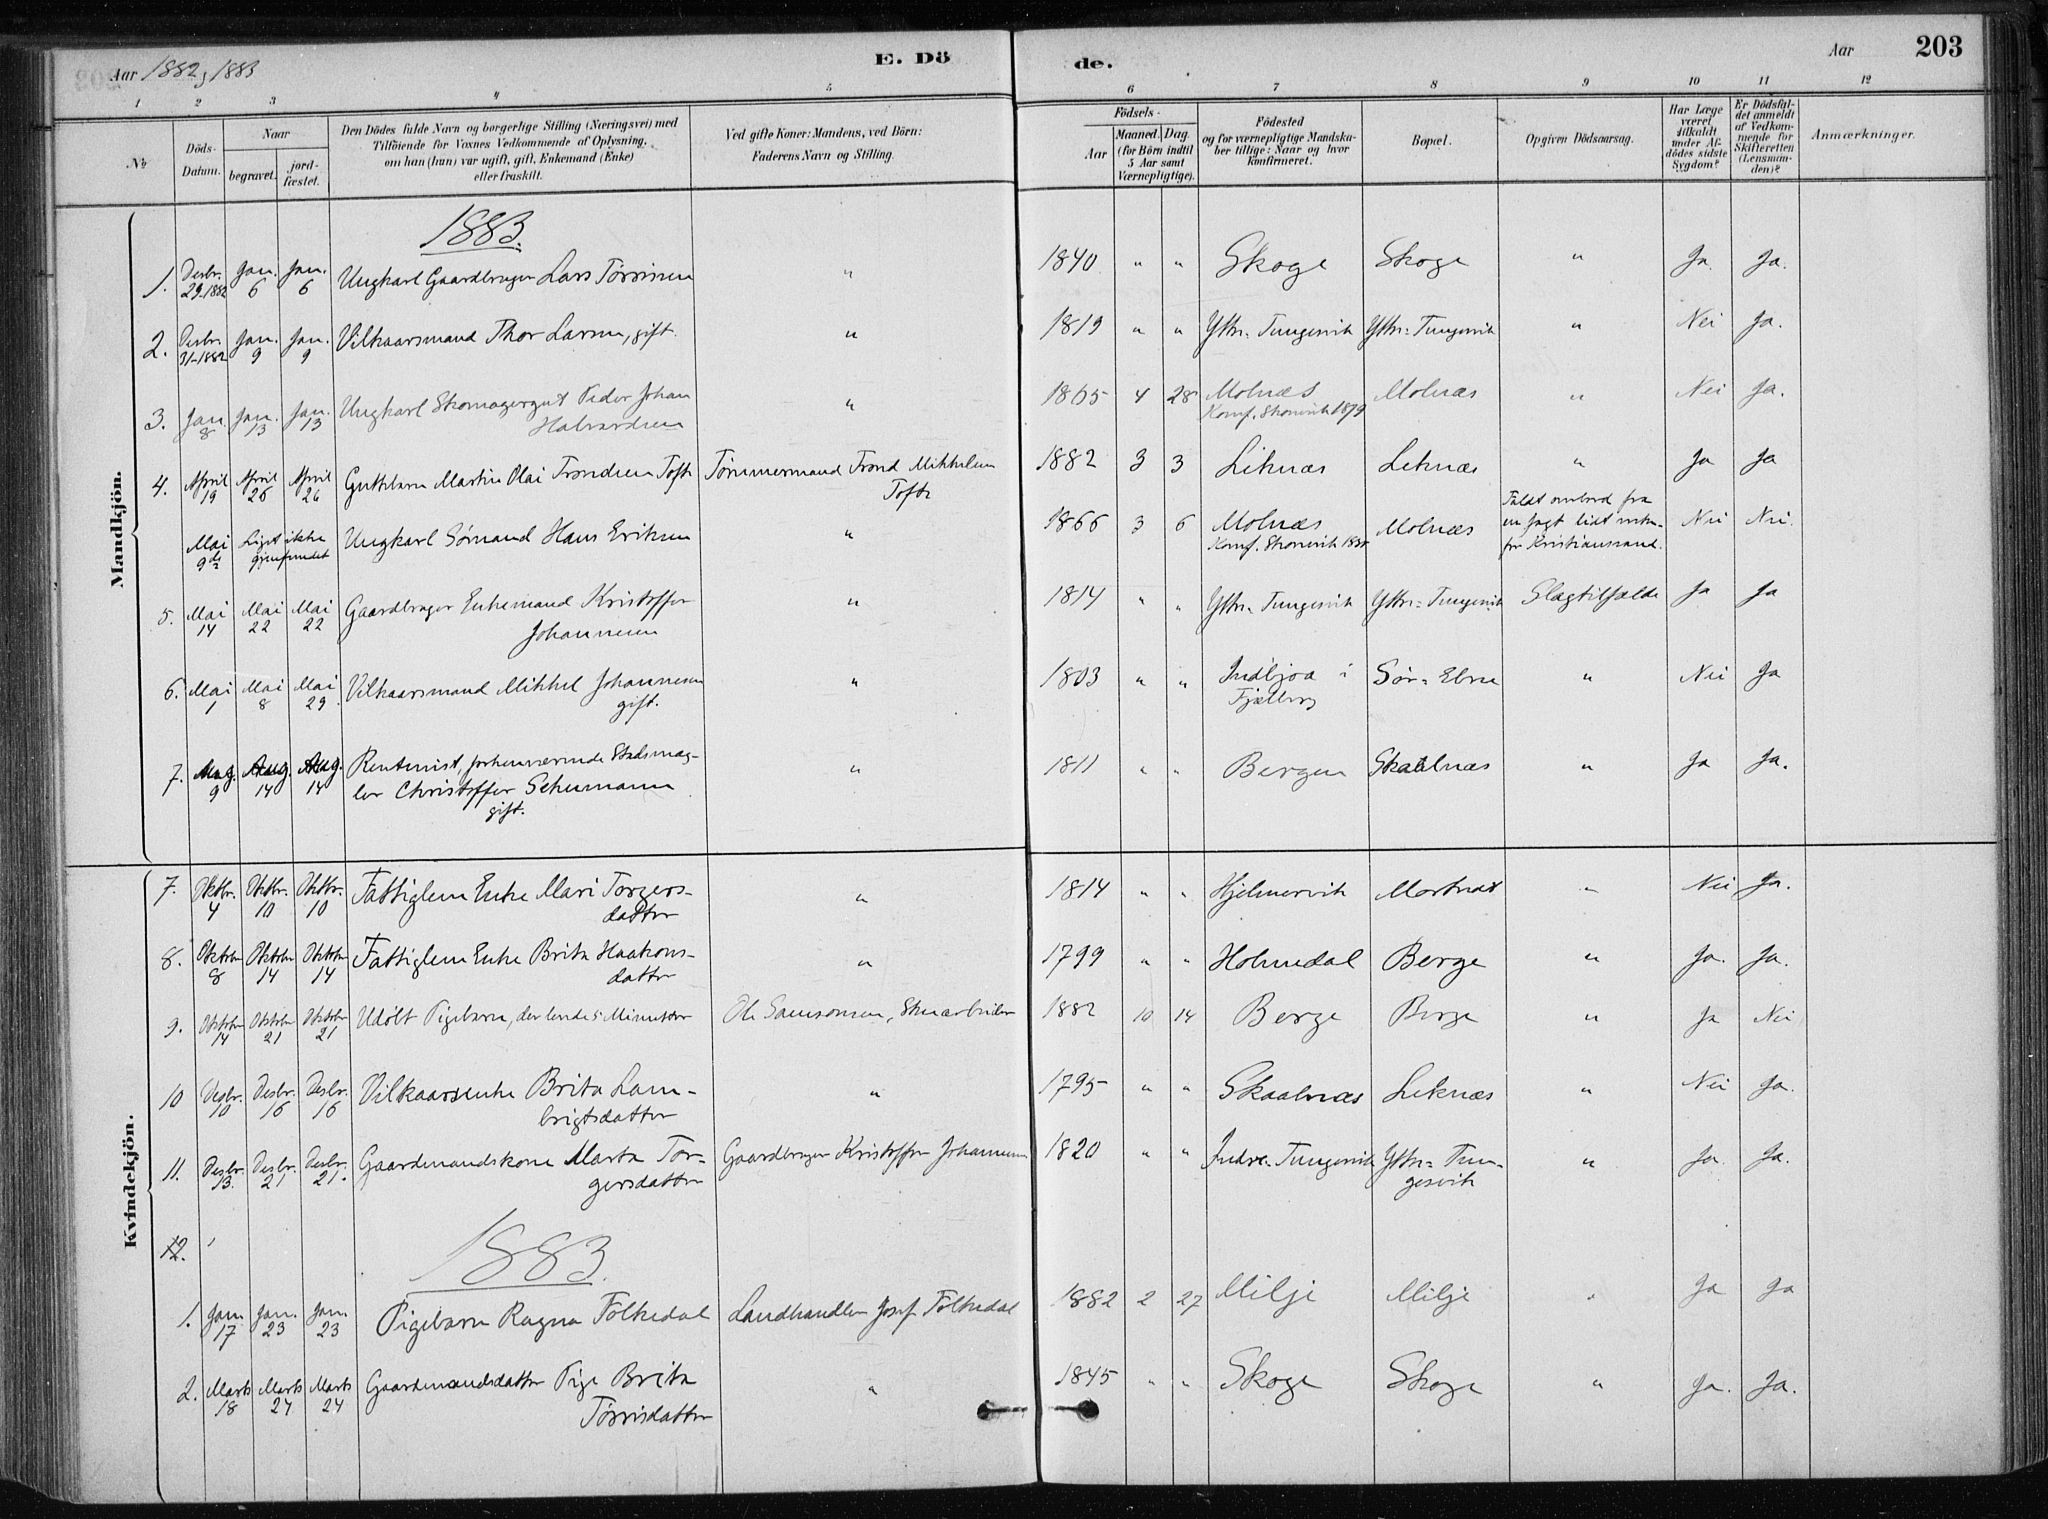 Aar 1882 og 1883
E. Dö
de.
Aar
203
1 2 3 4 5 6 7 8 9 10 11 12
No
Döds-Datum.
Naar
begravet.
jord-fæstet.
Den Dödes fulde Navn og borgerlige Stilling (Næringsvei) med
Tilföiende for Voxnes Vedkommende af Oplysning,
om han (hun) var ugift, gift, Enkemand (Enke)
eller fraskilt.
Ved gifte Koner: Mandens, ved Börn:
Faderens Navn og Stilling.
Födsels-
Aar
Maaned. Dag.
(for Börn indtil
5 Aar samt
Værnepligtige).
Födested
og for værnepligtige Mandska-
ber tillige: Naar og hvor
konfirmeret.
Bopæl.
Opgiven Dödsaarsag.
Har Læge
været
tilkaldt
under Af-
dödes sidste
Sygdom?
Er Dödsfal-
det anmeldt
af Vedkom-
mende for
Skifteretten
(Lensman-
den)?
Anmærkninger.
Mandkjön.
1883.
1. Desbr. 29-1882 Jan. 6 Jan. 6 Ungkarl Gaardbruger Lars Tørrisen " 1840 " " Skoge Skoge " Ja. Ja.
2. Desbr. 31-1882 Jan. 9 Jan. 9 Vilkaarsmand Thor Larsen, gift. " 1819 " " Yttre-Tungesvik Yttre-Tungesvik " Nei Ja.
3. Jan. 8 Jan. 13 Jan. 13 Ungkarl Skomagergut Peder Johan
Halvardsen " 1865 4 28 Molnæs Konf. Skonevik 1879 Molnæs " Nei Ja.
4. April 19 April 26 April 26 Guttebarn Martin Olai Trondsen Tofte Tømmermand Trond Mikkelsen
Tofte 1882 3 3 Leknæs Leknæs " Ja Ja
Mai 9de Liget ikke gjenfundet Ungkarl Sømand Hans Eriksen " 1866 3 6 Molnæs Konf. Skonevik Molnæs Faldt ombord fra
en Jagt lidt
for Kristianssand. Nei Nei.
5. Mai 14 Mai 22 Mai 22 Gaardbruger Enkemand Kristoffer
Johannesen " 1814 " " Yttre-Tungesvik Yttre-Tungesvik Slagtilfælde Ja Ja
6. Mai 1 Mai 8 Mai 29 Vilkaarsmand Mikkel Johannesen
gift. " 1803 " " Indbjoa i
Fjælberg Sør-Ebne " Nei Ja
7. Aug. 9 Aug. 14 Aug. 14 Rentenist, forhenværende Stadsmæg-
ler Christoffer Schumann
gift. " 1811 " " Bergen Skaalnæs " Ja Ja.
Kvindekjön.
7. Oktbr. 4 Oktbr. 10 Oktbr. 10 Fattiglem Enke Mari Torgers-
datter " 1814 " " Hjelmervik Mortvedt " Nei Ja.
8. Oktober 8 Oktober 14 Oktober 14 Fattiglem Enke Brita Haakons-
datter " 1799 " " Holmedal Berge " Ja. Ja.
9. Oktober 14 Oktober 21 Oktober 21 Udøbt Pigebarn, der levede 5 Minutter Ole Samsonsen, Skoarbeider 1882 10 14 Berge Berge " Ja Nei
10 Desbr. 10 Desbr. 16 Desbr. 16 Vilkaarsenke Brita Lam-
brigtsdatter " 1795 " " Skaalnæs Leknæs " Nei Ja.
11. Desbr. 13. Desbr. 21 Desbr. 21. Gaardmandskone Marta Tor-
gersdatter Gaardbruger Kristoffer Johannesen 1820 " " Indre-Tungesvik Yttre-Tun-
gesvik " Ja. Ja.
12.
1883.
1. Jan. 17 Jan. 23 Jan. 23 Pigebarn Ragna Folkedal Landhandler Josef Folkedal 1882 2 27 Milje Milje " Ja Ja
2. Marts 18 Marts 24 Marts 24 Gaardmandsdatter Pige Brita
Tørrisdatter " 1845 " " Skoge Skoge " Ja. Ja.